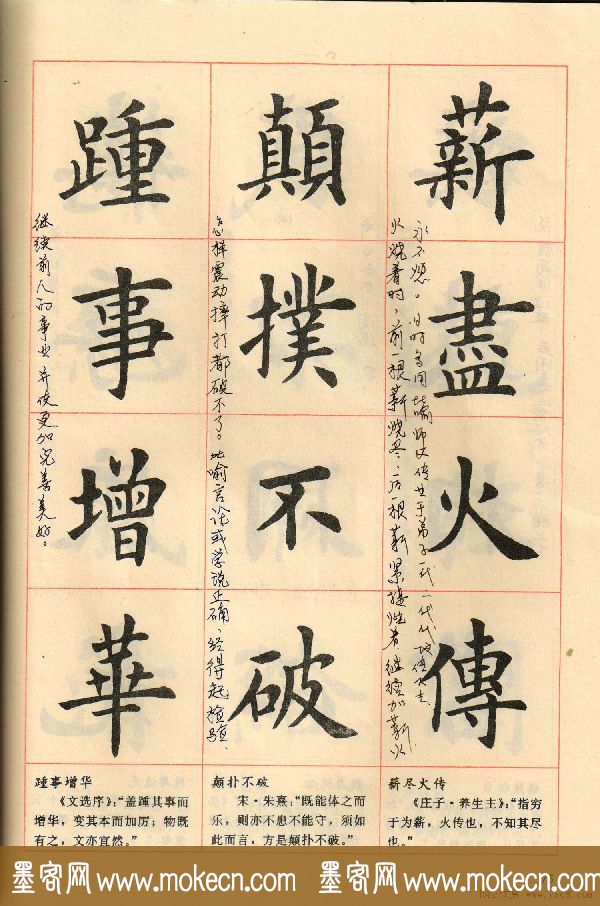 薪盡火傳
火烧着时，前一根薪烧尽，后一根薪紧接烧着，继续加薪，火
永不熄。旧时多用比喻师父传业于弟子，一代一代地传下去
顛撲不破
怎样震动摔打都破不了。比喻言论或学说正确，经得起检验，
踵事增華
继续前人的事业，并使更加完善美好。
踵事增华
《文选序》："盖踵其事而
增华，变其本而加厉；物既
有之，文亦宜然。"
颠扑不破
宋·朱熹："既能体之而
乐，则亦不患不能守，须如
此而言，方是颠扑不破。"
薪尽火传
《庄子·养生主》："指穷
于为薪，火传也，不知其尽
也。"
墨客网 www.mokecn.com 墨客网 www.mokecn.com